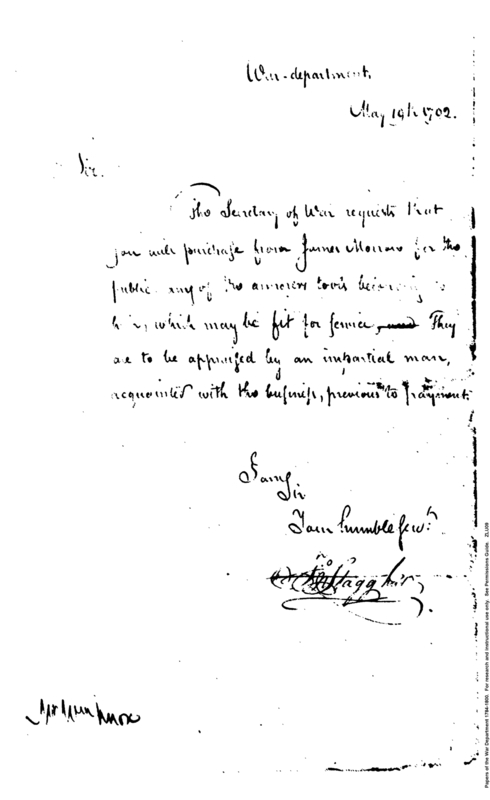 War-department,
May 19th 1792.
Sir.
The Secretary of War requests that
you will purchase from James Morrow for the
public any of the armorers tools belonging to
him, which may be fit for service, They
are to be appraised by an impartial man,
acquainted with the business, previous to payment.
I am
Sir
Your humble servt.
Jno Stagg Junr
Mr Knox
Papers of the War Department 1784-1800. For research and instructional use only. See Permissions Guide. ZLU09